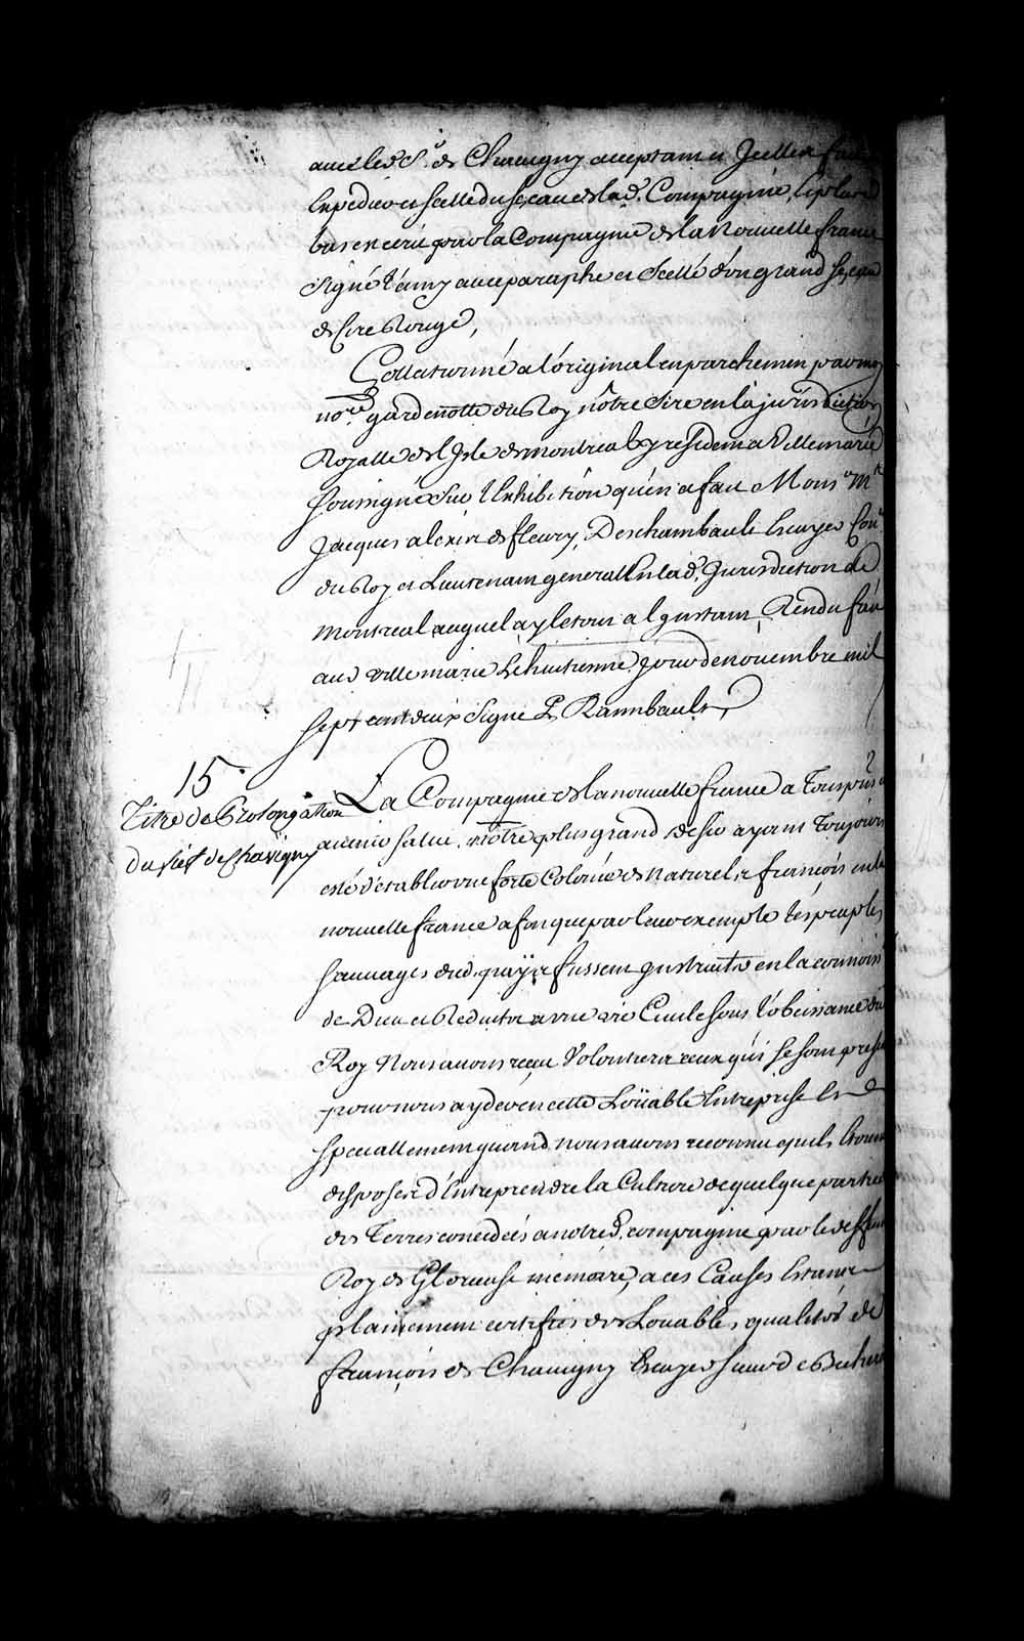 avec led. Sr. de Chavigny acceptant et Icelle
Expedier et scellé du sceau de lad. Compagnie,
bas est ecrit par la Compagnie de la Nouvelle france
signé Lamy avec paraphe et scellé d'un grand sceau
de Cire Rouge,
Collationné a l'original en parchemin par moy
nore. gardenotte du Roy nôtre Sire en la jurisdiction
Royalle de l'Isle de montreal y resident a Villemarie
soussigné sur l'Exhibition qu'en a fait Monsr. Mr
Jacques alexis de fleury, Deschambault Escuyer Con
du Roy et Lieutenant general En lad. Jurisdiction de
montreal auquel a l'Instant, Rendu
aud. villemarie Le huitieme jour de novembre mil
sept cent deux Signé P. Raimbault,
15.
Titre de Prolongation
du fief de Chavigny
La Compagnie de la nouvelle france a Tous
avenir salut. nôtre plus grand desir ayant Toujours
esté d'etablir une forte Colonie de naturels françois en la
nouvelle france afin que par leur exemple les peuples
sauvages dud. païs fussent Instruits en la connoiss
de Dieu et Reduits a une vie Civile sous l'obeissance du
Roy Nous avons receu Volontiers ceux qui se sont
pour nous ayder en cette Loüable Entreprise Et
speciallement quand nous avons reconnu quils
disposez d'Entreprendre la Culture de quelque partie
des Terres concedées a notred. compagnie par le deffunt
Roy de Glorieuse memoire, a ces Causes Estant
plainement certifiés des Loüables qualités de
françois de Chavigny Escuyer sieur de